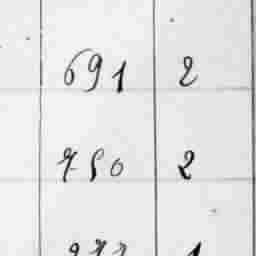 691 2
750 2